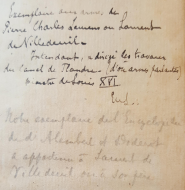 Exemplaire aux armes de
Pierre Charles Laurens ou Laurent
de Villedeuil.
Intendant, a dirigé les travaux
du Canal de Picardie (d'où armes parlantes)
ministre de Louis XVI
Notre exemplaire de l'Encyclopédie
de d'Alembert et Diderot
a appartenu à Laurent de
Villedeuil